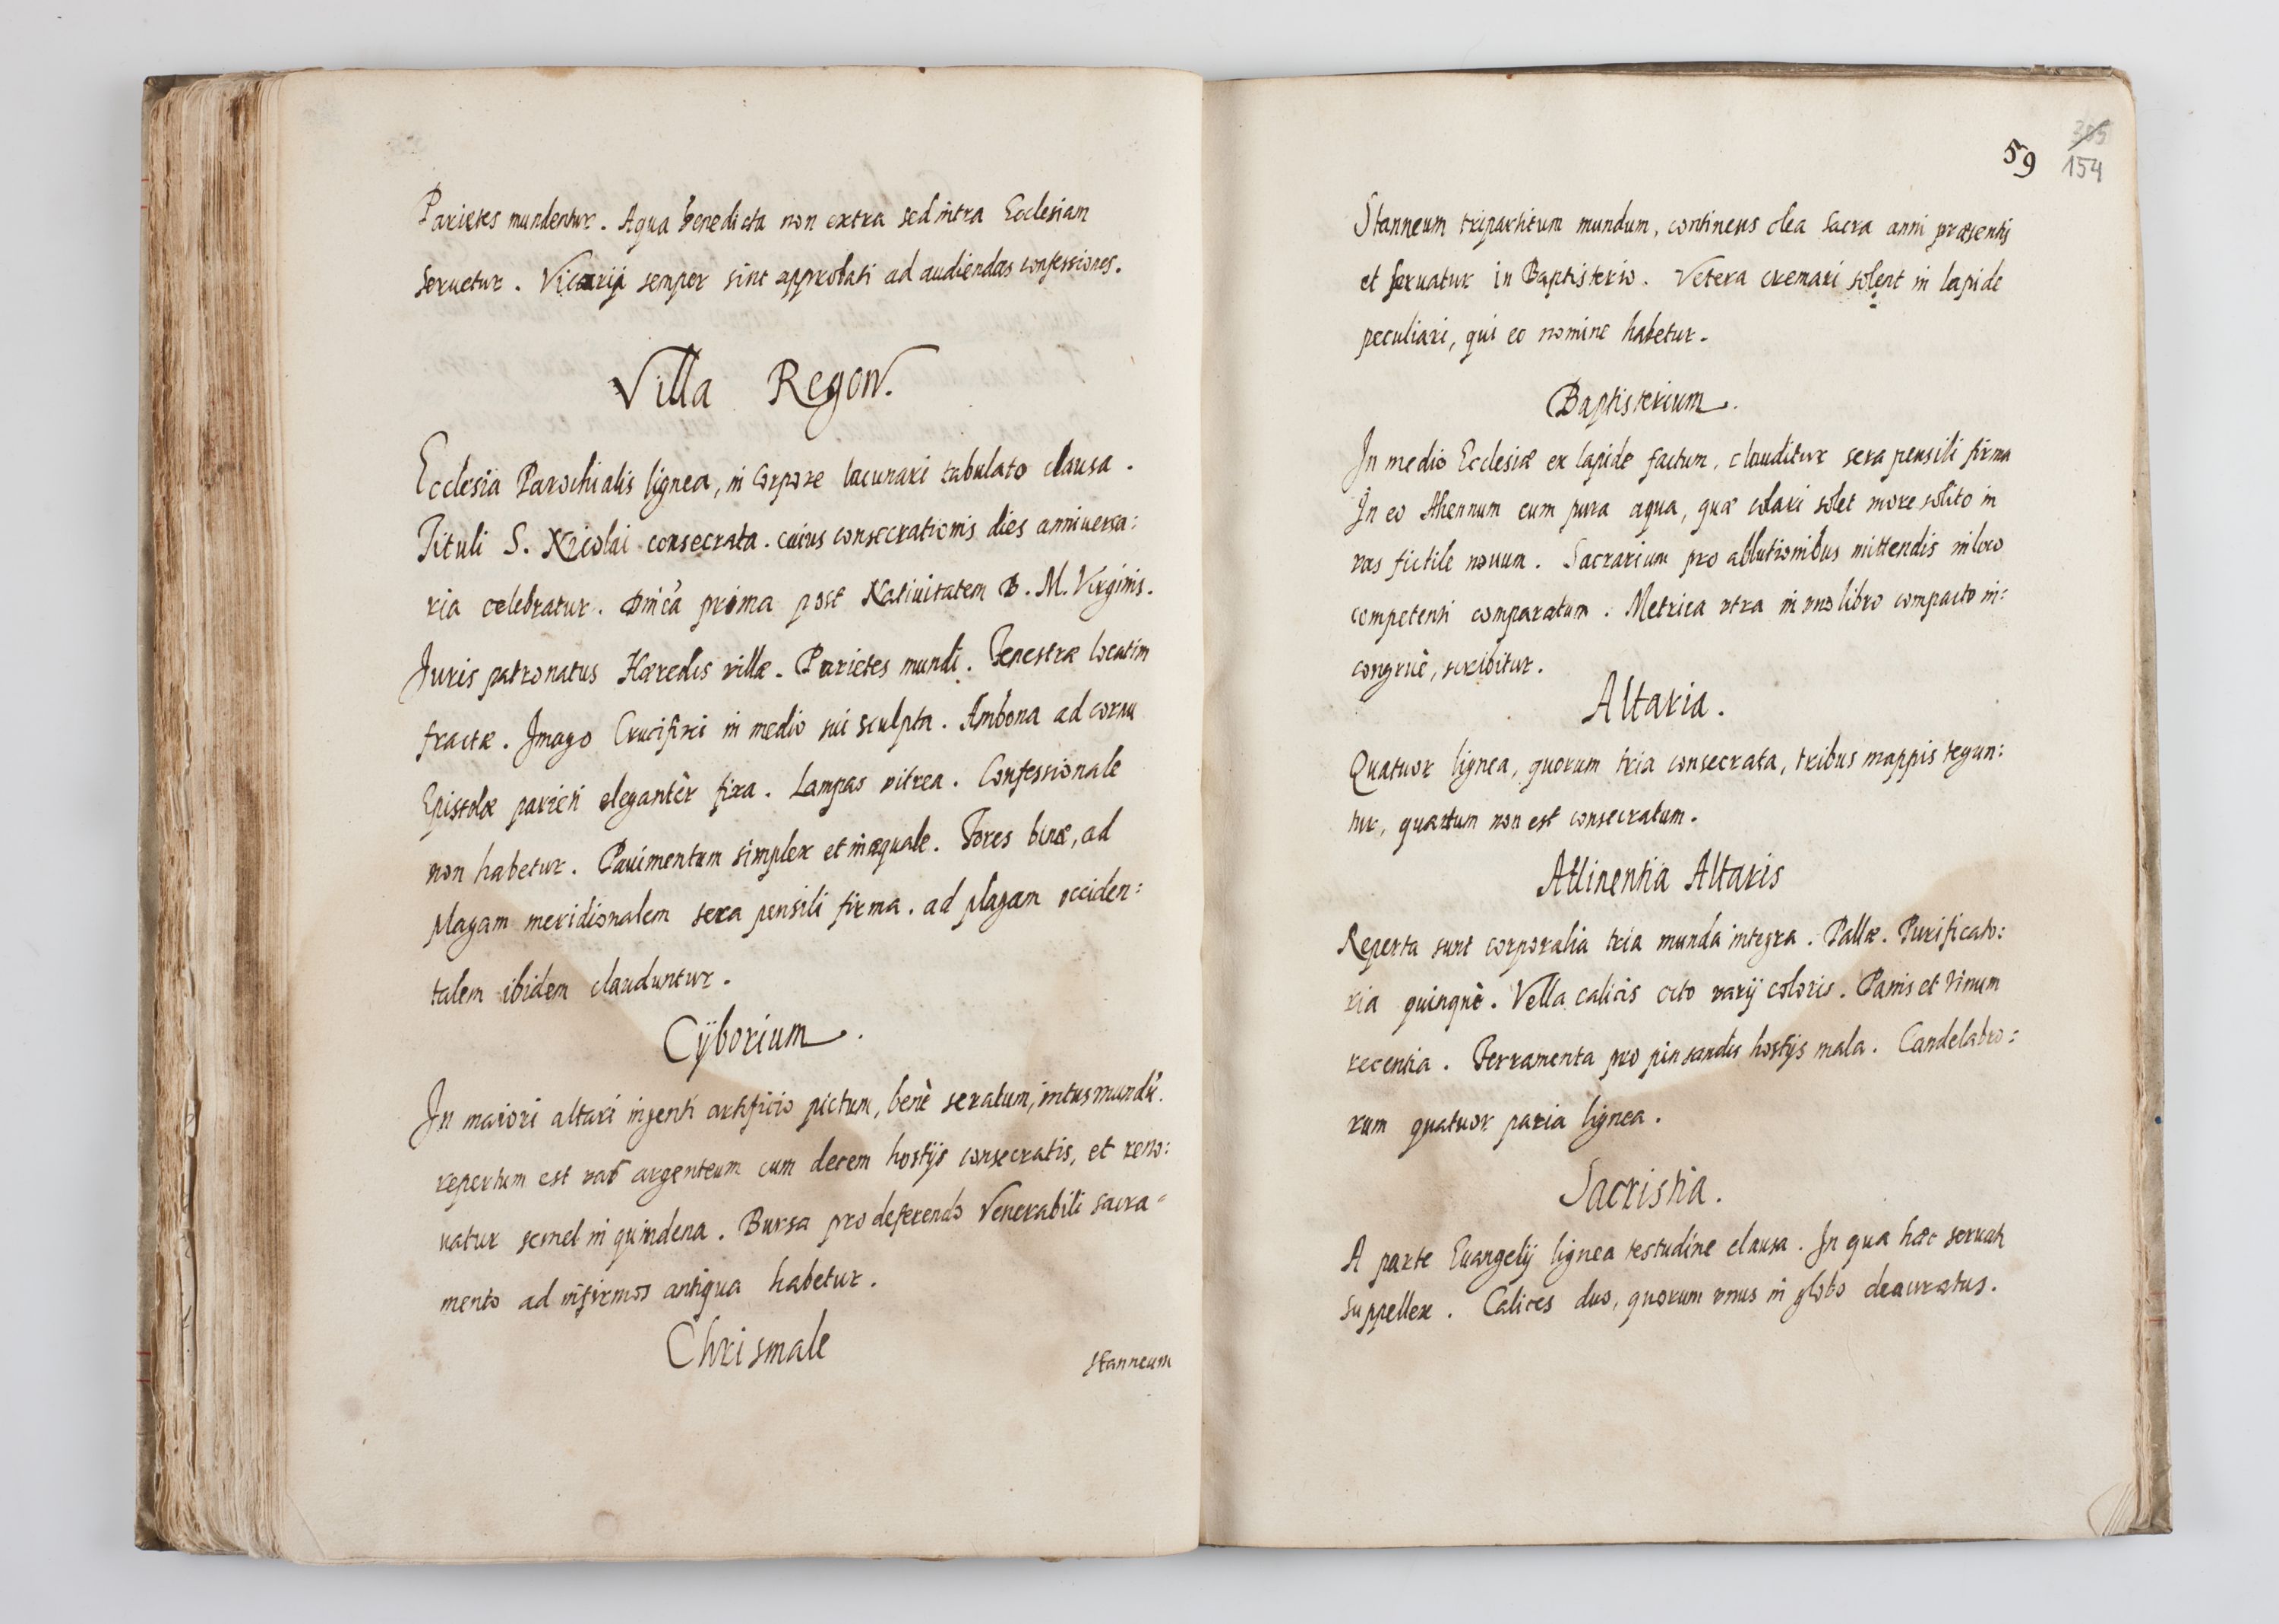 Parietes mundentur. Aqua benedicta non extra sed intra Ecclesiam
seruetur. Vicarij semper sint approbati ad audiendas confessiones.
Villa Regow.
Ecclesia Parochialis lignea, in corpore lacunari tabulato clausa.
Tituli S. Nicolai consecrata. cuius consecrationis dies anniuersa:
ria celebratur. Dnica prima post Natiuitatem B. M. Virginis.
Juris patronatus Hæredis villæ. Parietes mundi. Fenestræ locatim
fractæ. Imago Crucifixi in medio sui sculpta. Ambona ad cornu
Epistolæ parieti elegantèr fixa. Lampas vitrea. Confessionale
non habetur. Pauimentum simplex et inæquale. Fores binæ, ad
plagam meridionalem sera pensili firma. ad plagam occiden:
talem ibidem clauduntur.
Cÿborium.
In maiori altari ingenti artificio pictum, benè seratum, intus mundũ.
repertum est vas argenteum cum decem hostijs consecratis, et reno:
uatur semel in quindena. Bursa pro deferendo Venerabili sacra=
mento ad infirmos antiqua habetur.
Chrismale
Stanneum
59
305
154
Stanneum tripartitum mundum, continens olea sacra anni præsentis
et seruatur in Baptisterio. Vetera cremari solent in lapide
peculiari, qui eo nomine habetur.
Baptisterium.
In medio Ecclesiæ ex lapide factum, clauditur sera pensili firma
In eo Ahennum cum pura aqua, quæ colari solet more solito in
vas fictile nouum. Sacrarium pro ablutionibus mittendis in loco
competenti comparatum. Metrica vtra in vno libro compacto in:
congruè, scribitur.
Altaria.
Quatuor lignea, quorum tria consecrata, tribus mappis tegun:
tur, quartum non est consecratum.
Attinentia Altaris
Reperta sunt corporalia tria munda integra. Pallæ. Purificato:
ria quinquè. Vella calicis octo varij coloris. Panis et vinum
recentia. Ferramenta pro pinsandis hostijs mala. Candelabro:
rum quatuor paria lignea.
Sacristia.
A parte Euangelij lignea testudine clausa. In qua hæc seruatr
suppellex. Calices duo, quorum vnus in globo deauratus.